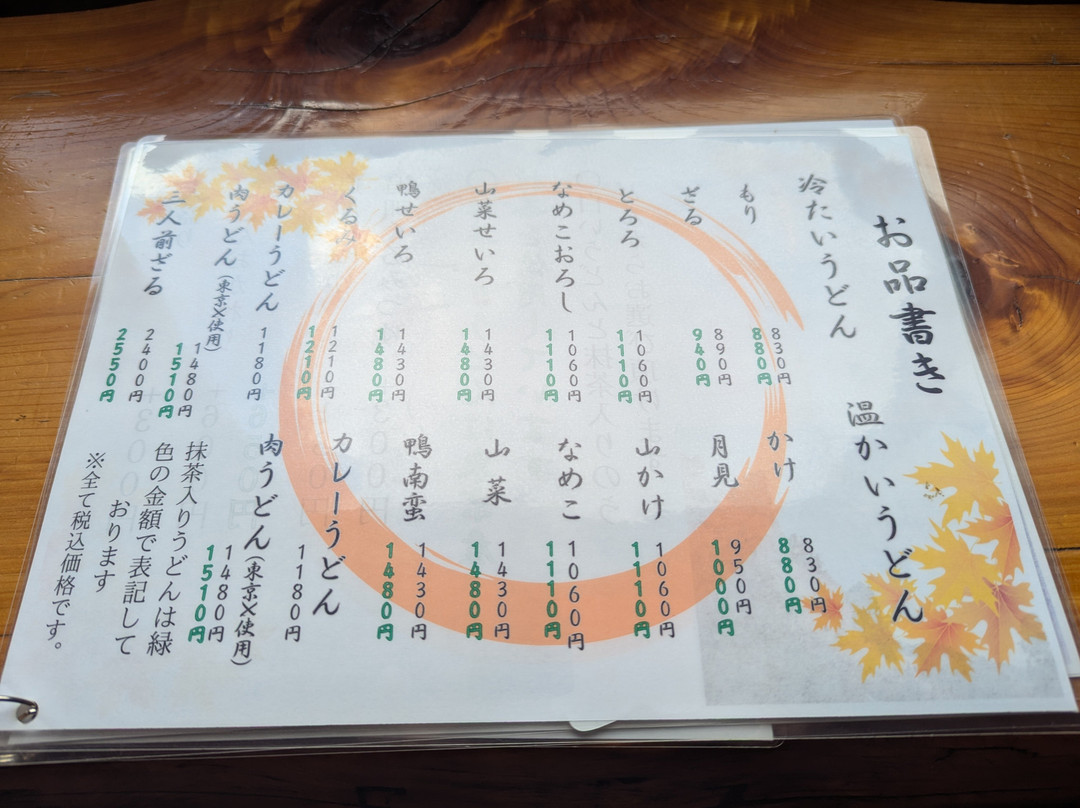 お品書き
冷たいうどん
もり
830円
880円
ざる
890円
940円
とろろ
1060円
1110円
なめこおろし
1060円
1110円
山菜せいろ
1430円
1480円
鴨せいろ
1430円
1480円
くるみ
1210円
1210円
カレーうどん
1180円
肉うどん(東京X使用)
1480円
1510円
三人前ざる
2400円
2550円
温かいうどん
かけ
830円
880円
月見
950円
1000円
山かけ
1060円
1110円
なめこ
1060円
1110円
山菜
1430円
1480円
鴨南蛮
1430円
1480円
カレーうどん
1180円
肉うどん(東京X使用)
1480円
1510円
抹茶入りうどんは緑
色の金額で表記して
おります
※全て税込価格です。